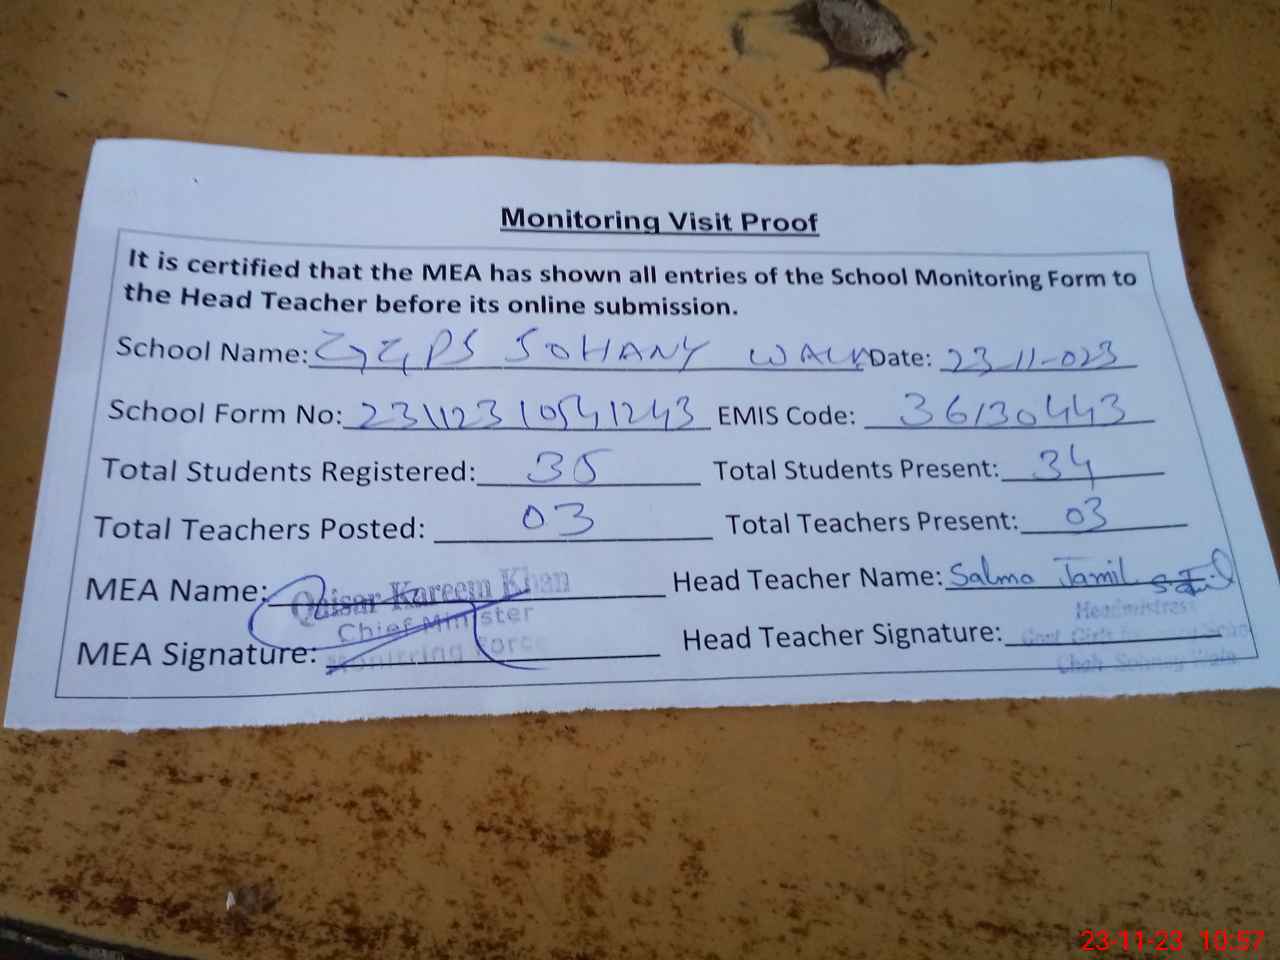 Monitoring Visit Proof
It is certified that the MEA has shown all entries of the School Monitoring Form to
the Head Teacher before its online submission.
School Name: GGPS SOHANY WALA Date: 23-11-023
School Form No: 23112310541243 EMIS Code: 36130443
Total Students Registered: 35 Total Students Present: 34
Total Teachers Posted: 03 Total Teachers Present: 03
MEA Name: Qaisar Kareem Khan Head Teacher Name: Salma Jamil
Chief Minister Headmistress
MEA Signature: Head Teacher Signature:
Monitring Force Govt Girls
23-11-23 10:57